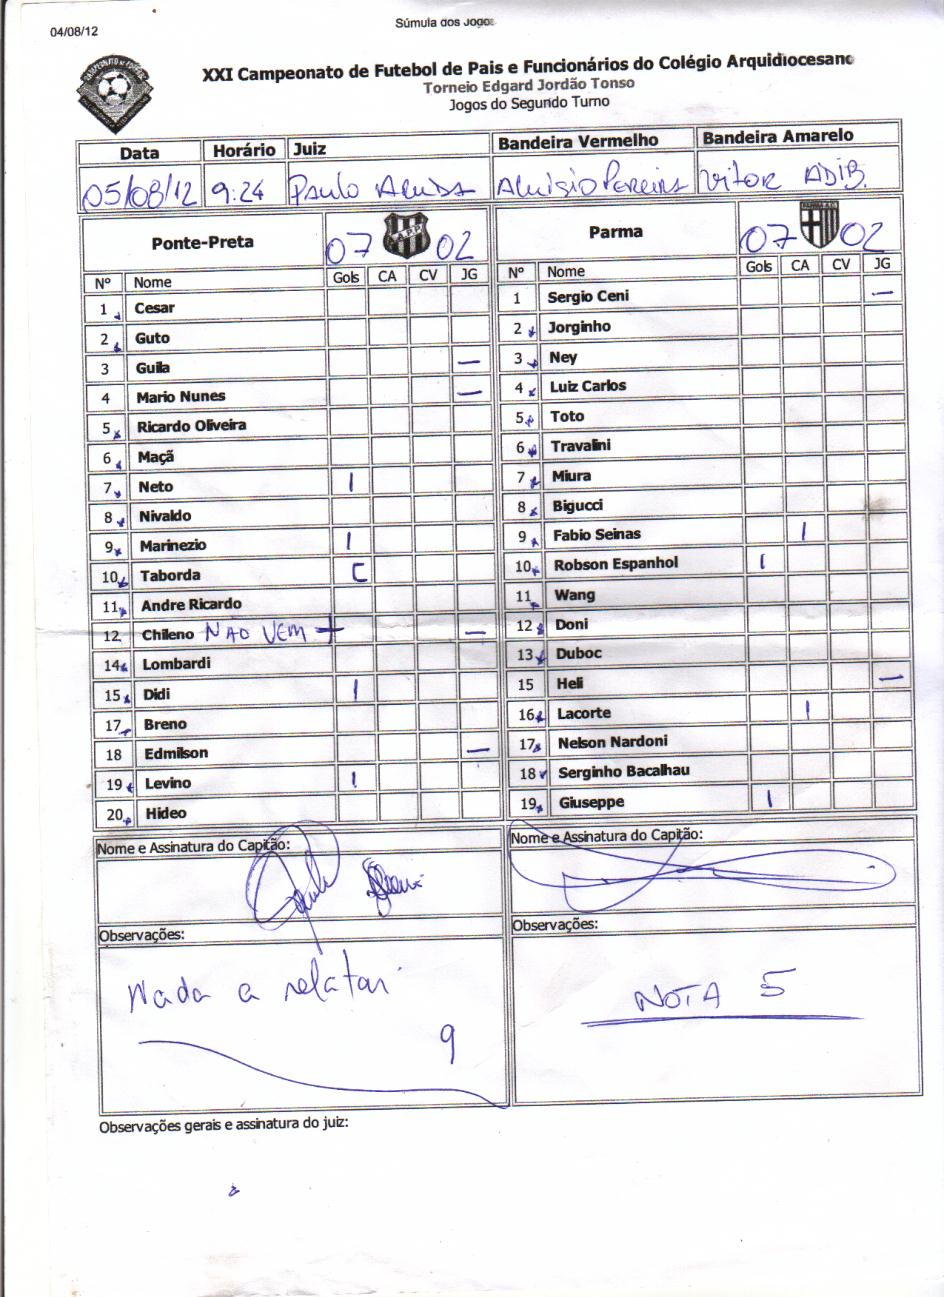 04/08/12
Súmula dos Jogos
XXI Campeonato de Futebol de Pais e Funcionários do Colégio Arquidiocesano
Torneio Edgard Jordão Tonso
Jogos do Segundo Turno
Data Horário Juiz Bandeira Vermelho Bandeira Amarelo
05/08/12 9:24 Paulo Aluisio Pereira Vitor ADIB.
Ponte-Preta 07 02
Nº Nome Gols CA CV JG
1 Cesar
2 Guto
3 Guila —
4 Mario Nunes —
5 Ricardo Oliveira
6 Maçã
7 Neto I
8 Nivaldo
9 Marinezio I
10 Taborda C
11 Andre Ricardo
12 Chileno NAO VEM + —
14 Lombardi
15 Didi I
17 Breno
18 Edmilson —
19 Levino I
20 Hideo
Nome e Assinatura do Capitão:
Observações:
Nada a relatar
9
Parma 07 02
Nº Nome Gols CA CV JG
1 Sergio Ceni —
2 Jorginho
3 Ney
4 Luiz Carlos
5 Toto
6 Travalini
7 Miura
8 Bigucci
9 Fabio Seinas I
10 Robson Espanhol I
11 Wang
12 Doni
13 Duboc
15 Heli —
16 Lacorte I
17 Nelson Nardoni
18 Serginho Bacalhau
19 Giuseppe I
Nome e Assinatura do Capitão:
Observações:
NOTA 5
Observações gerais e assinatura do juiz: